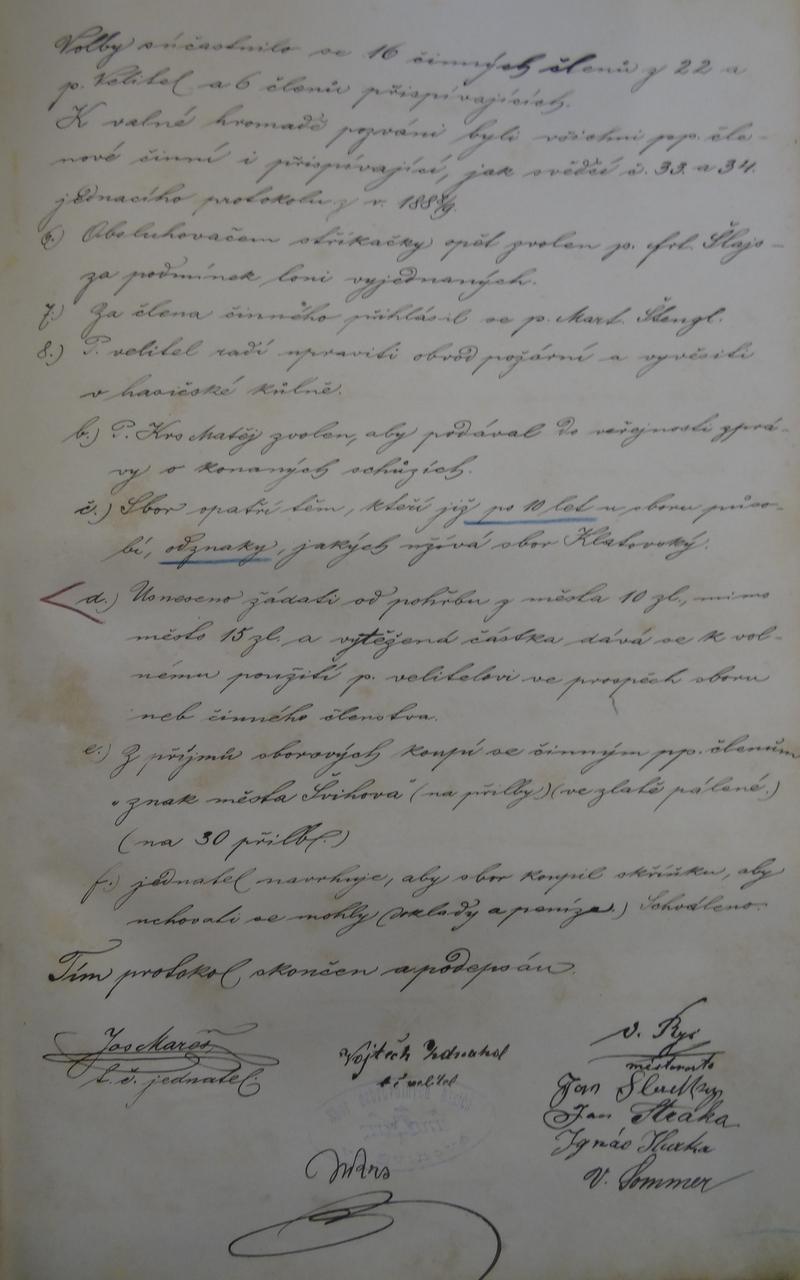 Volby súčastnilo se 16 činných členů z 22 a
p. Velitel a 6 členů přispívajících.
K valné hromadě pozváni byli všichni pp. čle-
nové činní i přispívající, jak svědší č. 33. a 34.
jednacího protokolu z r. 1888/9.
6.) Obsluhovačem stříkačky opět zvolen p. Frt. Šlajs-
za podmínek loni vyjednaných.
7.) Za člena činného přihlásil se p. Mart. Štengl.
8.) P. velitel radí upraviti obvod požární a vyvěsiti
v hasičské kůlně.
b.) P. Krs Matěj zvolen, aby podával do veřejnosti zprá-
vy o konaných schůzích.
č.) Sbor opatří těm, kteří již po 10 let u sboru půso-
bí, odznaky, jakých užívá sbor Klatovský.
d.) Usneseno žádati od pohřbu z města 10 zl., mimo
město 15 zl. a vytěžená částka dává se k vol-
nému použití p. velitelovi ve prospěch sboru
neb činného členstva.
e.) Z příjmů sborových koupí se činným pp. členům
"znak města Švihova" (na přilby) (ve zlatě pálené.)
(na 30 přilb.)
f.) jednatel navrhuje, aby sbor koupil skříňku, aby
uchovati se mohly (doklady a peníze.) Schváleno.
Tím protokol skončen a podepsán.
Jos Mareš,
t. č. jednatel.
Vojtěch
t č velitel
V. Rys
místonato
Jan
Jan Straka
Ignác
V. Sommer
MKrs